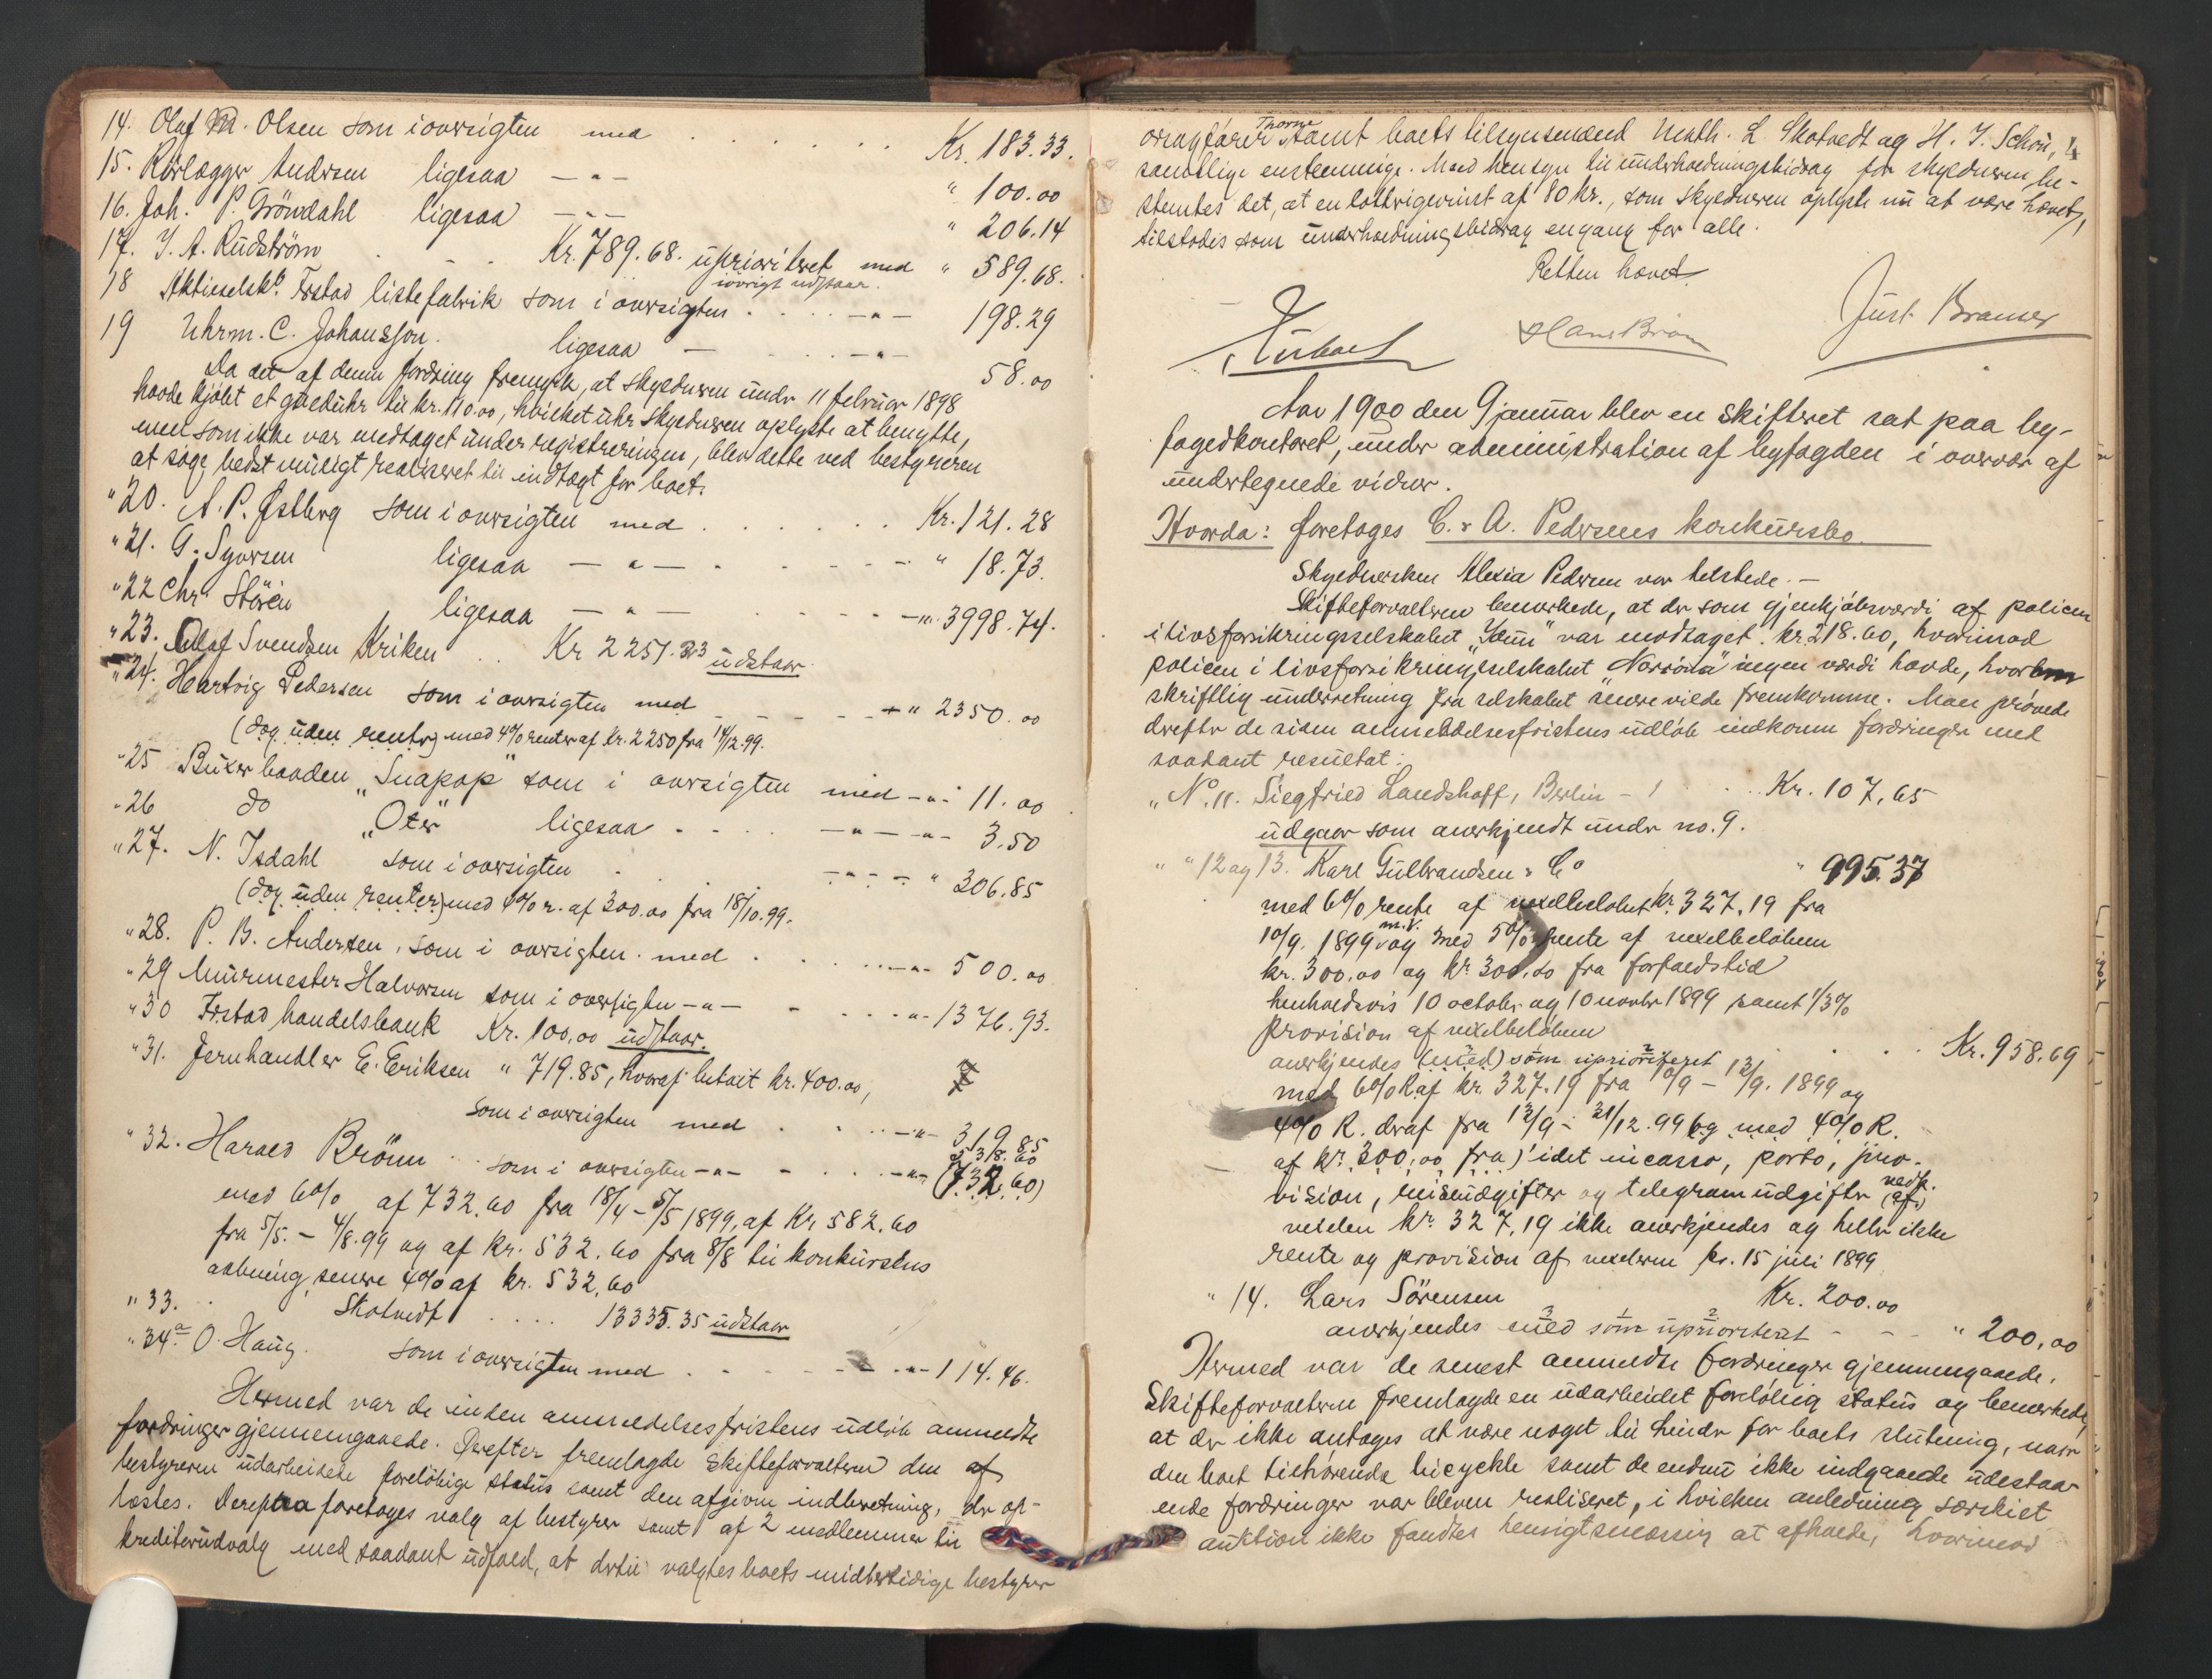 14. Olaf M. Olsen som i oversigten med . . . . . . Kr. 183.33.
15. Rørlægger Andersen ligesaa — " — " 100.00
16. Joh. P. Gröndahl ligesaa — " — " 206.14
17. J. A. Rudström . - . Kr. 789.68. uprioriteret med " 589.68.
iövrigt udstaar.
18 Aktieselsk. Frstad listefabrik som i oversigten . . . . — " — 198.29
19 Uhrm. C. Johansson. ligesaa — . . — " — 58.00
Da det af denne fordring fremgik, at skyldneren under 11 februar 1898
havde kjöbt et guldühr til kr. 110.00, hvilket uhr skyldneren oplyste at benytte,
men som ikke var medtaget under registreringen, blev dette ved bestyreren
at söge bedst muligt realiseret til indtægt for boet.
" 20. A. P. Østberg som i oversigten med . . . . . . Kr. 121.28
" 21. G. Syversen ligesaa — " — . . . . . " 18.73.
" 22 Chr. Stören ligesaa — " — . . . . — " 3998.74.
" 23. Olaf Svendsen Kriken . . Kr 2257.33 udstaar.
" 24. Hartvig Pedersen som i oversigten med - - - - - " 2350.00
(dog uden renter) med 4% renter af kr. 2250 fra 14/12.99.
" 25 Buxer baaden "Snapop" som i oversigten med - " - 11.00
" 26 do "Oter" ligesaa . . . . — " — " - 3.50
" 27. N. Isdahl som i oversigten . . . - " - - " 306.85
(dog uden renter) med 4% r. af 300.00 fra 18/10.99.
" 28. P. B. Andersen, som i oversigten. med . . . . . . — " - 500.00
" 29 Murmester Halvorsen som i oversigten — " — - . . . . " - 1376.93.
" 30 Frstad handelsbank Kr. 100,00 udstaar.
" 31. Jernhandler E. Eriksen " 719.85, hvoraf betalt kr. 400.00,
som i oversigten med . . . . . — " - 319.85
" 32. Harald Brönn . . som i oversigten — " — - . . . — " - 538.60
(732.60)
med 6% af 732.60 fra 18/4 - 5/5 1899, af Kr. 582.60
fra 5/5. - 4/8.99 og af kr. 532.60 fra 8/8 til konkursens
aabning, senere 4% af kr. 532,60
" 33. . . Skotvedt . . . . 13335.35 udstaar
" 34a O. Haug. som i oversigten med . . - - - - . " - 114.46.
Hermed var de inden anmeldelsesfristens udlöb anmeldte
fordringer gjennemgaaede. Derefter fremlagde skifteforvalteren den af
bestyreren udarbeidede forelöbige status samt den afgivne indberetning, der op-
læstes. Derefter foretages valg af bestyrer samt af 2 medlemmer til
kreditorudvalg med saadant udfald, at dertil valgtes boets midlertidige bestyrer
4
Thorne
overagförer samt boets tilsynsmænd Math. L. Skotvedt og H. J. Schou,
samtlige enstemmige. Med hensyn til underholdningsbidrag for skyldneren be-
stemtes det, at en lotterigevinst af 80 kr., som skyldneren oplyste nu at være hævet,
tilstodes som underholdningsbidrag engang for alle.
Retten hævet.
Hans Brönn Just Bramer
Aar 1900 den 9 januar blev en skifteret sat paa by-
fogedkontoret, under administration af byfogden i overvær af
undertegnede vidner.
Hvorda: foretages C. & A. Pedersens konkursbo.
Skyldnersken Alexia Pedersen var tilstede. —
Skifteforvalteren bemerkede, at der som gjenkjöbsværdi af policen
i livsforsikringsselskabet "Ydun" var modtaget kr. 218.60, hvorimod
policen i livsforsikringsselskabet "Norröna" ingen værdi havde, hvorom
skriftlig underretning fra selskabet senere vilde fremkomme. Man prövede
derefter de siden anmeldelsesfristens udlöb indkomne fordringer med
saadant resultat:
" No. 11. Siegfried Landshoff, Berlin - . . . Kr. 107,65
udgaar som anerkjendt under no. 9.
" " 12 og 13. Karl Gulbrandsen & Co " 995.37
med 6% rente af vexelbelöbet kr. 327.19 fra
m.v.
10/9. 1899 og med 5% rente af vexelbelöbene
kr. 300.00 og kr. 300.00 fra forfaldstid
henholdsvis 10 october og 10 novbr 1899 samt 1/3%
provision af vexelbelöbene
anerkjendes (med) som uprioriteret . . . Kr. 958.69
med 6% R. af kr. 327.19 fra 10/9 - 12/9. 1899 og
4% R. deraf fra 12/9 - 21/12.99 og med 4% R.
af kr. 300,00 fra) idet incasso, porto, pro-
vision, reiseudgifter og telegramudgifter vedk. (af)
vexlen kr. 327,19 ikke anerkjendes og heller ikke
rente og provision af vexleren pr. 15 juli 1899
" 14. Lars Sörensen Kr. 200.00
anerkjendes med som uprioriteret - - - " 200,00
Hermed var de senest anmeldte fordringer gjennemgaaede.
Skifteforvalteren fremlagde en udarbeidet forelöbig status og bemerkede,
at der ikke antages at være noget til hinder for boets slutning, naar
den boet tilhörende bicyckle samt de endnu ikke indgaaede udestaa-
ende fordringer var bleven realiseret, i hvilken anledning særskilt
auktion ikke fandtes hensigtsmæssig at afholde, hvorimod